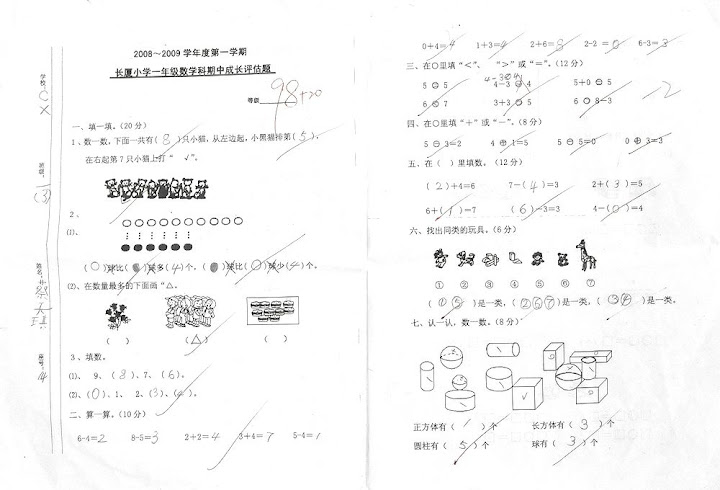 2008～2009 学年度第一学期
长厦小学一年级数学科期中成长评估题
等级 98+20
学校：
班级：1(3)
姓名：
座号：14
一、填一填。(20分)
1、数一数，下面一共有( 8 )只小猫，从左边起，小黑猫排第( 5 )。
在右起第7只小猫上打“ √”。
2、
⑴、
( ○ )球比( ● )球多(4)个。( ● )球比( ○ )球少(4)个。
⑵、在数量最多的下面画“△。
( ) (△) ( )
3、填数。
⑴、 9、( 8 )、7、( 6 )。
⑵、(0)、1、 2、(3)、(4)。
二、算一算。(10分)
6-4=2 8-5=3 2+2=4 3+4=7 5-4=1
0+4=4 1+3=4 2+6=8 2-2=0 6-3=3
三、在○里填“<”、 “>”或“=”。(12分)
5 5 4-3 4 5+0 5
6 7 3+3 5 6 8-3
四、在○里填“+”或“－”。(8分)
5 - 3=2 4 + 1=5 5 - 5=0 0 + 3=3
五、在（ ）里填数。(12分)
( 2 )+4=6 7-( 4 )=3 2+( 3 )=5
6+( 1 )=7 ( 6 )-3=3 4-( 0 )=4
六、找出同类的玩具。(6分)
① ② ③ ④ ⑤ ⑥ ⑦
( ①⑤ )是一类，( ②⑥⑦ )是一类，( ③④ )是一类。
七、认一认，数一数。(8分)
正方体有( 1 )个 长方体有( 3 )个
圆柱有( 5 )个 球有( 3 )个